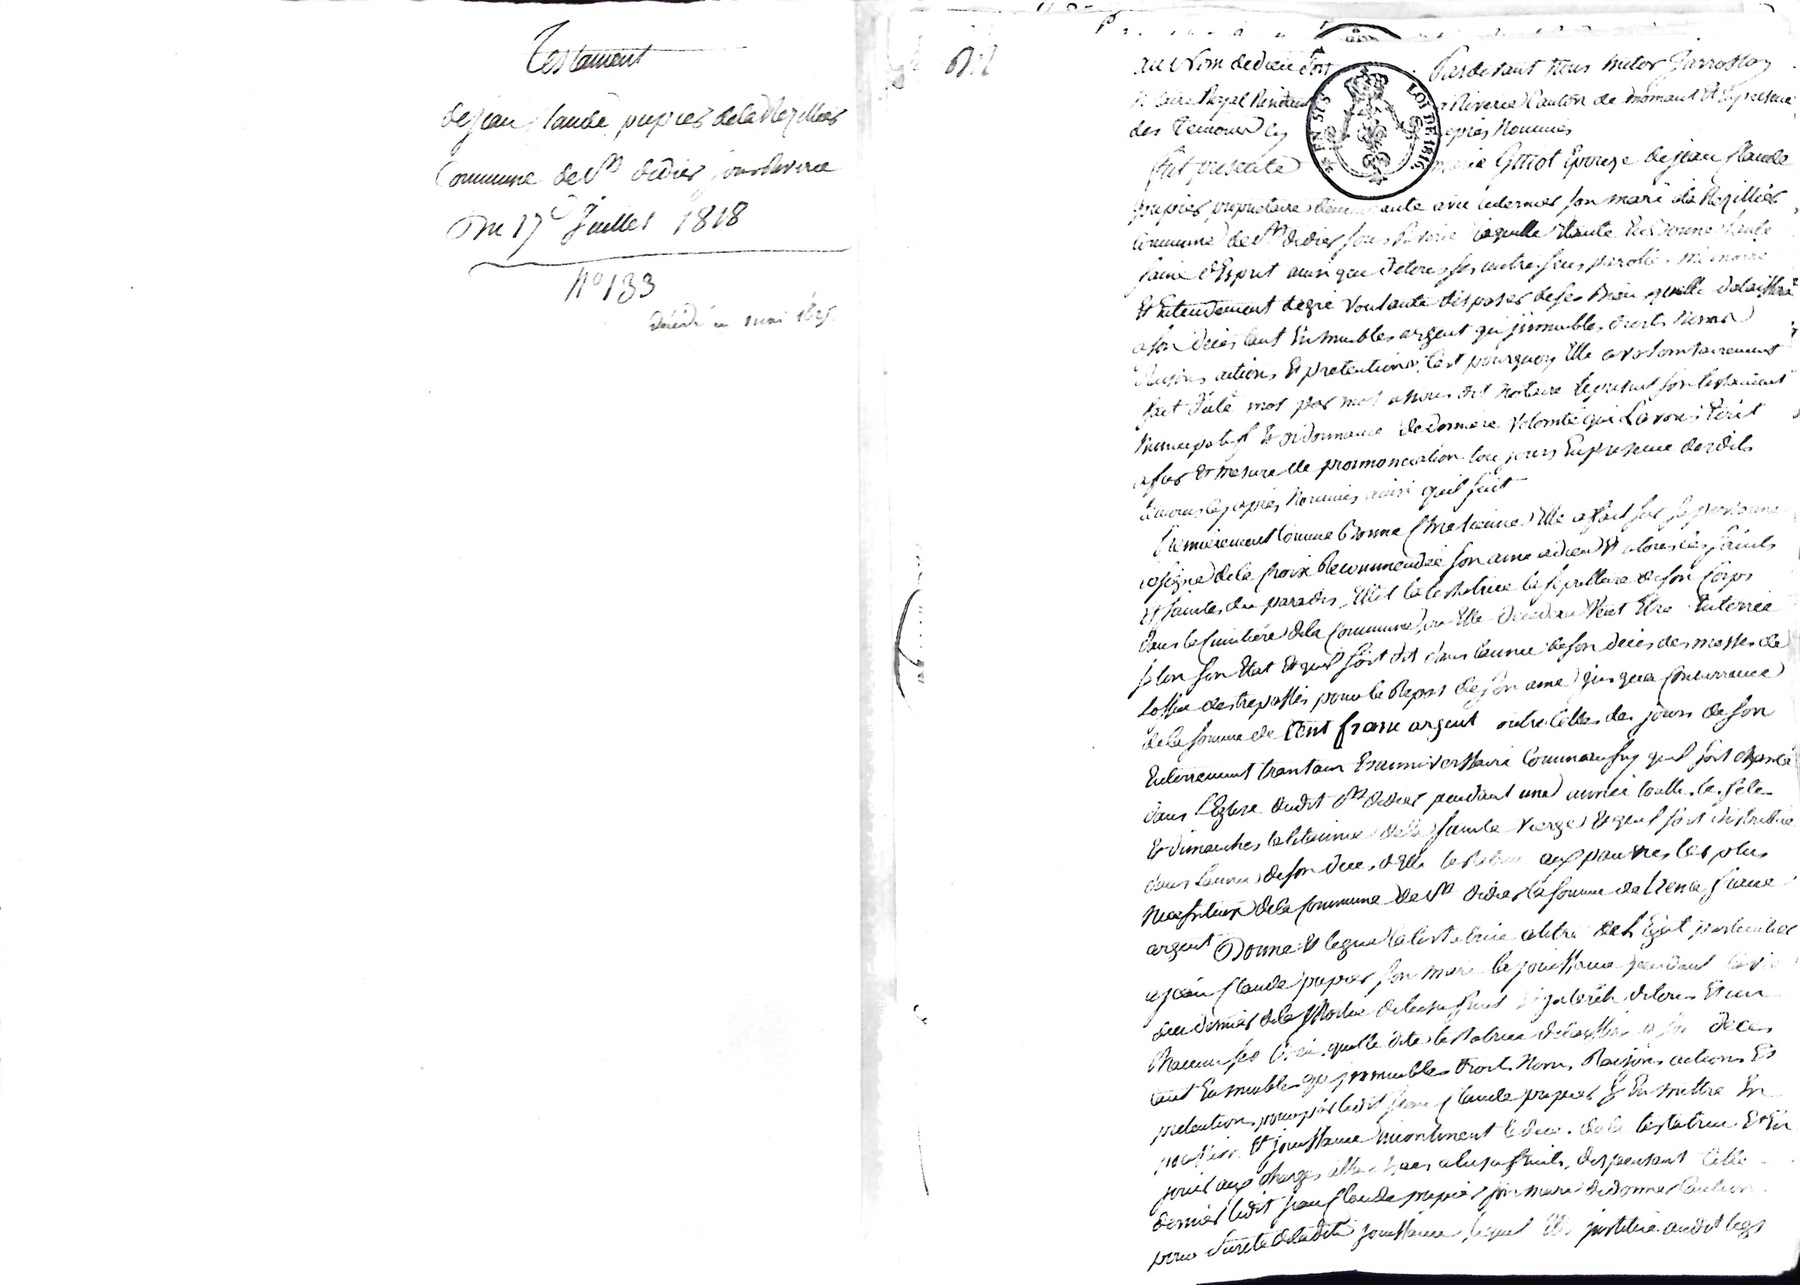 Testament
de jean Claude pupier de la Rezilliere
Commune de St didier sous Riverie
Du 17e Juillet 1818
N° 133
décédé en mai
au Nom de dieu soit Pardevant Nous
Notaire Royal Residant a Riverie Canton de mornant Et En presence
des Temoins cy après Nommés
fut presente marie Guiot Epouze de jean Claude
pupier proprietaire demeurante avec ce dernier son mari a la Rezilliere
Commune de St didier sous Riverie laquelle Etante En bonne Santé
saine d'Esprit ainsi que de tous ses autres sens parolle memoire
Et Entendement de gré Voulante disposer de ses Biens quelle delaissera
a son décès tant En meubles argent qu'jmmeubles droits Noms
Raisons actions Et pretentions, C'est pourquoy Elle a volontairement
fait dicté mot par mot a nous dit Notaire le present son testament
Nuncupatif Et ordonnance de derniere Volonté que L'avons Ecrit
a fur Et mesure de prononciation toujours En presence des dits
temoins cy après Nommés ainsi quil suit
Premierement Comme Bonne Chretienne Elle a fait sur sa personne
le signe de la Croix Recommandée son ame a dieu Et a tous les saints
Et saintes du paradis, Elit la testatrice la sepulture de son Corps
dans le Cimitière de la Commune ou Elle decedera Veut Etre Enterrée
selon son Etat Et quil soit dit dans l'année de son décès des messes de
L'office des trepassés pour le Repos de son ame jusqu'a Concurrance
de la somme de Cent franc argent outre Celles des jours de son
Enterrement trantain Et anniverssaire Comme aussy quil soit chanté
dans L'Eglise dudit St didier pendant une année touttes les fêtes
Et dimanches les litanies de la sainte Vierge Et quil soit distribué
dans l'année de son décès d'Elle testatrice aux pauvres les plus
Necessiteux de la Commune de St didier la somme de trente francs
argent Donne Et legue la testatrice a titre de L'Egat particulier
a jean Claude pupier son mari la jouissance pendant la vie
de ce dernier de la Moitié de l'usufruit
chacun ses biens quelle dite testatrice delaissera a son décès
tant En meubles que jmmeubles droits Noms Raisons actions Et
pretentions pour par ledit jean Claude pupier s'En mettre En
possession Et jouissance incontinent le décès de la testatrice Et En
jouir aux charges attachées a l'usufruit, dispensant Celle
dernier ledit jean Claude pupier son mari de donner Caution
pour sureté de ladite jouissance lequel Elle institue audit legs
EN SUS
LOI DE 1816